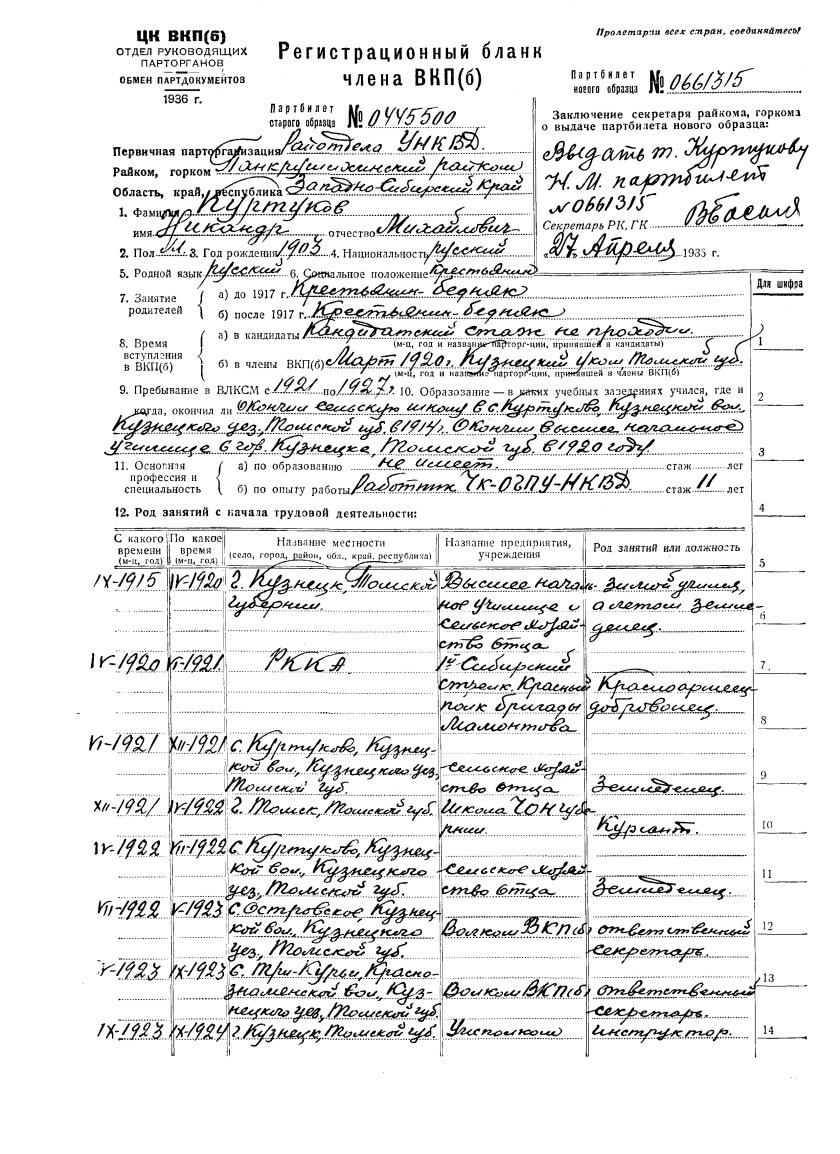 ЦК ВКП(б)
ОТДЕЛ РУКОВОДЯЩИХ
ПАРТОРГАНОВ
ОБМЕН ПАРТДОКУМЕНТОВ
1936 г.
Регистрационный бланк
члена ВКП(б)
Партбилет
старого образца № 0445500
Пролетарии всех стран, соединяйтесь!
Партбилет
нового образца № 0661315
Заключение секретаря райкома, горкома
о выдаче партбилета нового образца:
Выдать т. Куртукову
Н. М. партбилет
№ 0661315
Секретарь РК, ГК
„27" Апреля 1936 г.
Первичная парторганизация Райотдела УНКВД.
Райком, горком Панкрушихинский райком
Область, край, республика Западно-Сибирский Край
1. Фамилия Куртуков
имя Никандр отчество Михайлович
2. Пол М. 3. Год рождения 1903 4. Национальность русский
5. Родной язык русский 6. Социальное положение крестьянин
7. Занятие родителей
а) до 1917 г. Крестьянин-бедняк
б) после 1917 г. Крестьянин-бедняк
8. Время вступления в ВКП(б)
а) в кандидаты Кандидатский стаж не проходил.
(м-ц, год и название парторг-ции, принявшей в кандидаты)
б) в члены ВКП(б) Март 1920 г. Кузнецкий уком Томской губ.
(м-ц, год и название парторг-ции, принявшей в члены ВКП(б)
9. Пребывание в ВЛКСМ с 1921 по 1927 г. 10. Образование — в каких учебных заведениях учился, где и
когда, окончил ли Окончил сельскую школу в с. Куртуково, Кузнецкой вол.
Кузнецкого уез, Томской губ. в 1914 г. Окончил высшее начальное
училище в гор. Кузнецке, Томской губ. в 1920 году.
11. Основная профессия и специальность
а) по образованию не имеет. стаж лет
б) по опыту работы Работник ЧК-ОГПУ-НКВД. стаж 11 лет
12. Род занятий с начала трудовой деятельности:
С какого времени (м-ц, год) По какое время (м-ц, год) Название местности (село, город, район, обл., край, республика) Название предприятия, учреждения Род занятий или должность
IX-1915 IV-1920 г. Кузнецк, Томской Высшее началь- Зимой учился,
губернии. ное училище и а летом земле-
сельское хозяй- делец.
ство отца
IV-1920 VI-1921 РККА 1й Сибирский
стрелк. Красный Красноармеец
полк бригады доброволец.
Мамонтова
VI-1921 XII-1921 с. Куртуково, Кузнец-
кой вол., Кузнецкого уез, сельское хозяй-
Томской губ. ство отца Земледелец.
XII-1921 IV-1922 г. Томск, Томской губ. Школа ЧОН губе-
рнии. Курсант.
IV-1922 VII-1922 с. Куртуково, Кузнец-
кой вол., Кузнецкого сельское хозяй-
уез, Томской губ. ство отца Земледелец.
VII-1922 V-1923 с. Островское, Кузнец-
кой вол., Кузнецкого Волком ВКП(б) ответственный
уез, Томской губ. секретарь.
V-1923 IX-1923 с. Три-Курьи, Красно-
знаменской вол., Куз- Волком ВКП(б) ответственный
нецкого уез, Томской губ. секретарь.
IX-1923 IX-1924 г. Кузнецк, Томской губ. Уисполком инструктор.
Для шифра
1
2
3
4
5
6
7
8
9
10
11
12
13
14